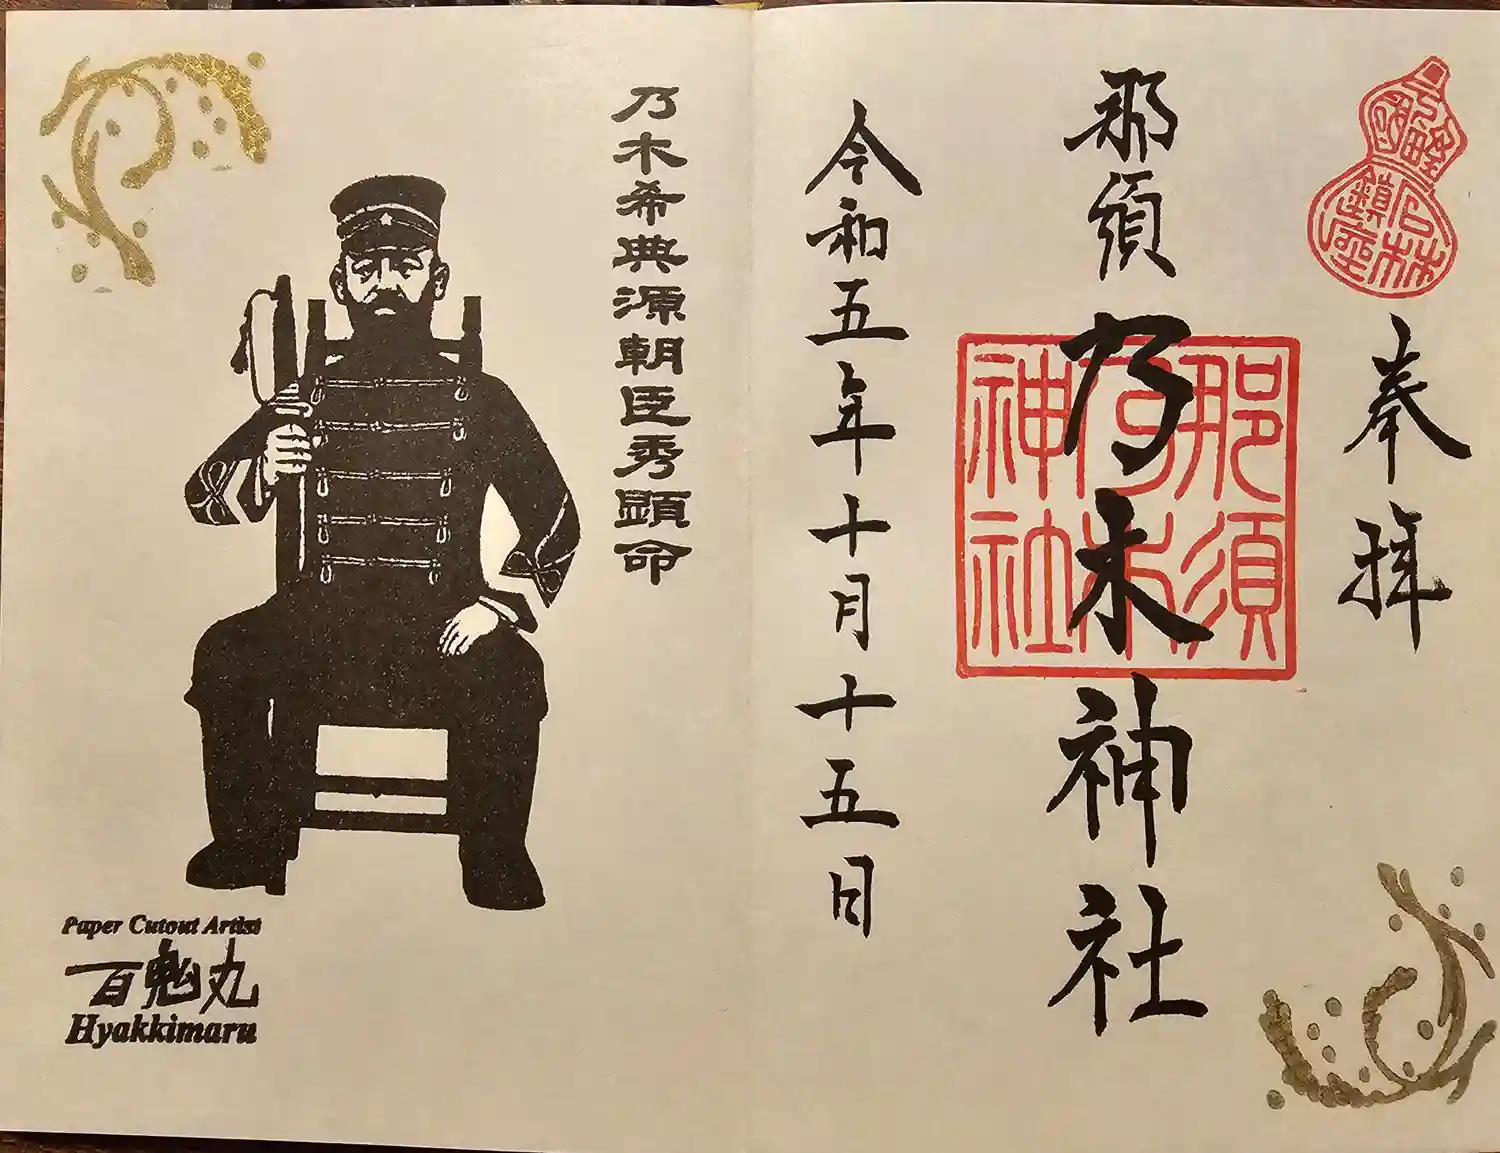 奉拝
那須乃木神社
那須
乃木
神社
令和五年十月十五日
乃木希典源朝臣秀顕命
Paper Cutout Artist
百鬼丸
Hyakkimaru